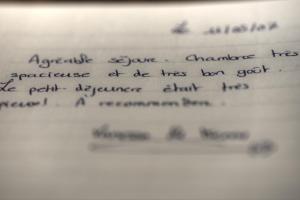 Le 11/05/07
Agréable séjour. Chambre très
spacieuse et de très bon goût.
Le petit déjeunere était très
A recommander.